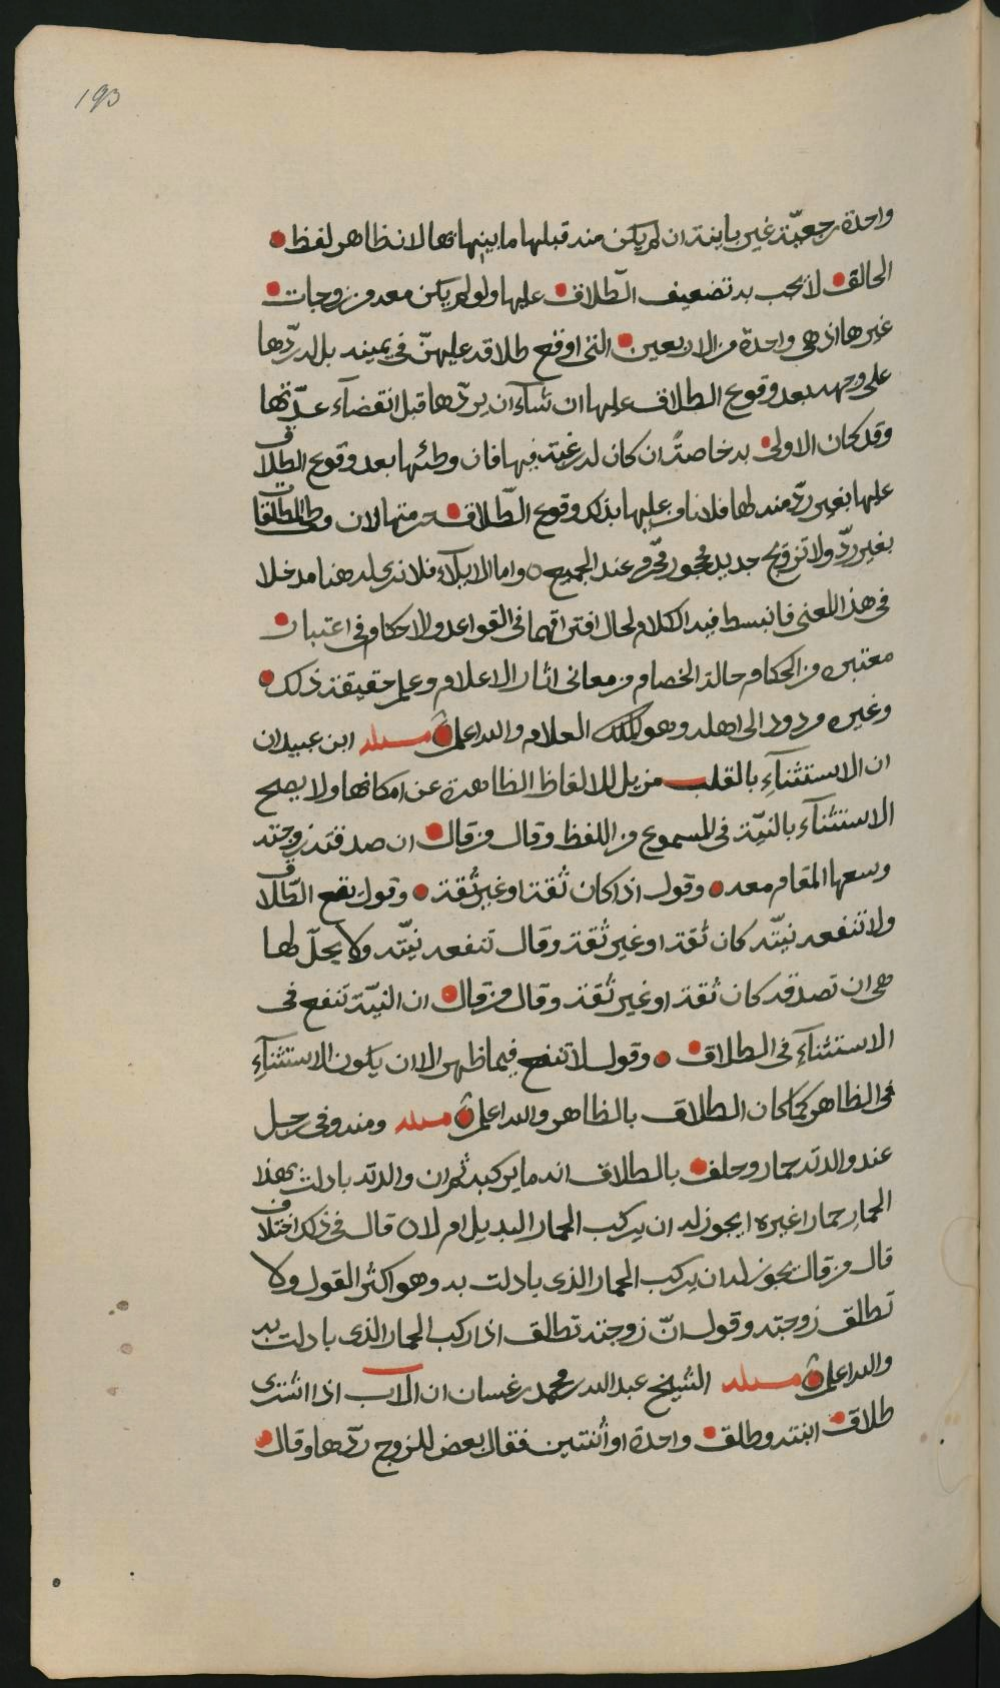 193
واحدة رجعيّة غير باينة ان لم يكن منه قبلها ما يبينها بها لان ظاهر لفظ
الحالف لا يجب به تضعيف الطّلاق عليها ولو لم يكن معه من زوجات
غيرها اذ هي واحدة من الاربعين التي اوقع طلاقه عليهنّ في يمينه بل له ردّها
على وجهه بعد وقوع الطلاق عليها ان شآء ان يردّها قبل انقضآء عدّتها
وقد كان الاولى به خاصةً ان كان له رغبة فيها فان وطئها بعد وقوع الطلاق
عليها بغير ردّ منه لها فلا نامن عليها بذلك وقوع الطّلاق حرمتها لان وطى المطلقات
بغير ردّ ولا تزويج جديد محجور محّرم عند الجميع واما الايلآء فلا ندرى له هنا مدخلا
في هذا المعنى فانبسط فيه الكلام لحال افتراقهما في القواعد والاحكام وفي اعتبار
معتبره من الحكام حالة الخصام من معاني اثار الاعلام وعلم حقيقة ذلك
وغيره مردود الى اهله وهو الملك العلام والله اعلم مسئله ابن عبيدان
ان الاستثنآءِ بالقلب مزيل للالفاظ الظاهرة عن امكانها ولا يصلح
الاستثنآء بالنيّة في المسموع من اللفظ وقال من قال ان صدقته زوجته
وسعها المقام معه وقول اذا كان ثقة او غير ثقة وقول يقع الطّلاق
ولا تنفعه نيّته كان ثقة او غير ثقة وقال تنفعه نيّته ولا يحلّ لها
هى ان تصدقه كان ثقة او غير ثقة وقال من قال ان النيّة تنفع في
الاستثنآءِ في الطلاق وقول لا تنفع فيما ظهر الا ان يكون الاستثنآءِ
في الظاهر كما كان الطلاق بالظاهر والله اعلم مسئله ومنه وفي رجل
عند والدته حمار وحلف بالطلاق انه ما يركبه ثم ان والدته بادلت بهذا
الحمارِ حمارا غيره ايجوز له ان يركب الحمار البديل ام لا قال في ذلك اختلاف
قال من قال يجوز له ان يركب الحمار الذى بادلت به وهو اكثر القول ولا
تطالق زوجته وقول انّ زوجته تطالق اذا ركب الحمار الذى بادلت به
والله اعلم مسئله الشيخ عبد الله بن محمد بن غسان ان الاب اذا اشترى
طلاق ابنته وطالق واحدة او اثنتين فقال بعض للزوج ردّها وقال